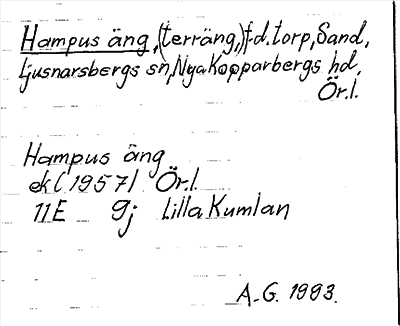 Hampus äng, (terräng,) f.d. torp, Sand,
Ljusnarsbergs sn, Nya Kopparbergs hd,
Ör.l.
Hampus äng
ek (1957) Ör.l.
11E 9j Lilla Kumlan
A.G. 1993.